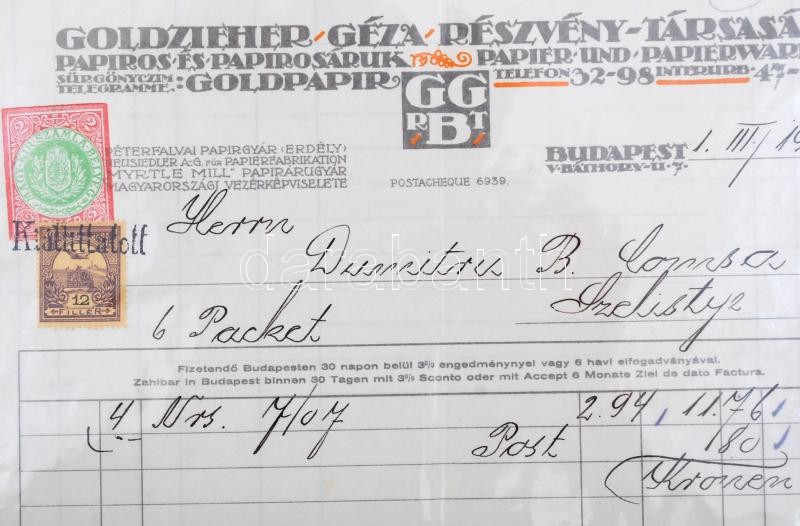 GOLDZIEHER GÉZA RÉSZVÉNY-TÁRSASÁ
PAPIROS-ÉS-PAPIROSÁRUK PAPIER-UND-PAPIERWAR
SÜRGÖNYCZIM
TELEGRAMME: GOLDPAPIR TELEFON 32-98 INTERURB. 47-
GG
R B T
PÉTERFALVAI PAPIRGYÁR (ERDÉLY)
NEUSIEDLER A.G. FÜR PAPIERFABRIKATION
"MYRTLE MILL" PAPIRÁRUGYÁR
MAGYARORSZÁGI VEZÉRKÉPVISELETE
POSTACHEQUE 6939.
BUDAPEST 1. III/19
V. BÁTHORY-U. 7.
2 2
Kiállittatott
12
FILLÉR
Herrn
Dumitru B. Comsa
Szelistye
6 Packet
Fizetendő Budapesten 30 napon belül 3% engedménynyel vagy 6 havi elfogadványával.
Zahlbar in Budapest binnen 30 Tagen mit 3% Sconto oder mit Accept 6 Monate Ziel de dato Factura.
4 Nrs. 7/07 2.94 11.76
Post 180
Kronen
darabanth